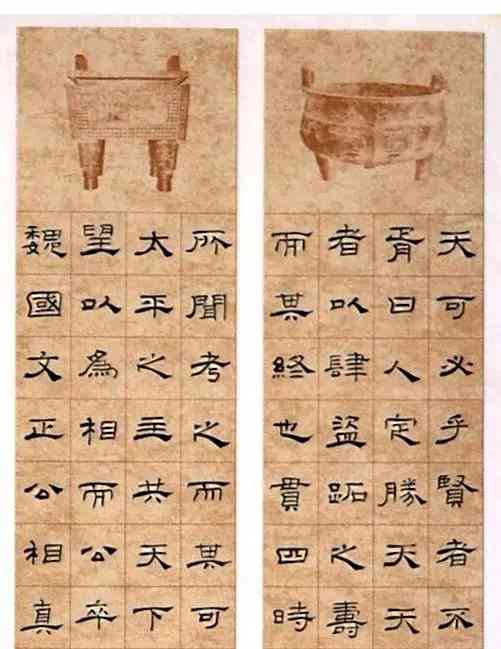 天可必乎賢者不
胥曰人定勝天天
者以肆盜跖之壽
而其終也貫四時
所聞考之而其可
太平之主共天下
望以為相而公卒
魏國文正公相真